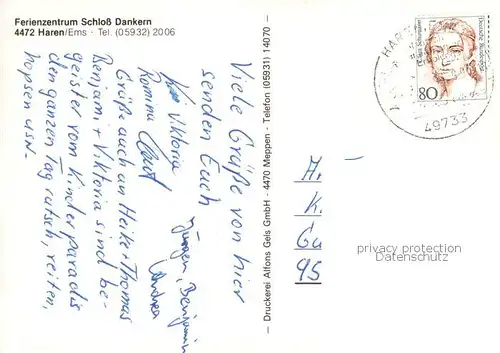 Ferienzentrum Schloß Dankern
4472 Haren/Ems · Tel. (05932) 2006
Viele Grüße von hier
senden Euch
Viktoria
Jürgen, Benjamin
Romina
Andrea
Grüße auch an Heike + Thomas
Benjam. + Viktoria sind be-
geister vom Kinderparadis
den ganzen Tag rutsch, reiten,
hopsen usw.
– Druckerei Alfons Gels GmbH - 4470 Meppen - Telefon (05931) 14070 –
Deutsche Bundespost
80
HAREN
49733
A.
K.
Gu
95
privacy protection
Datenschutz